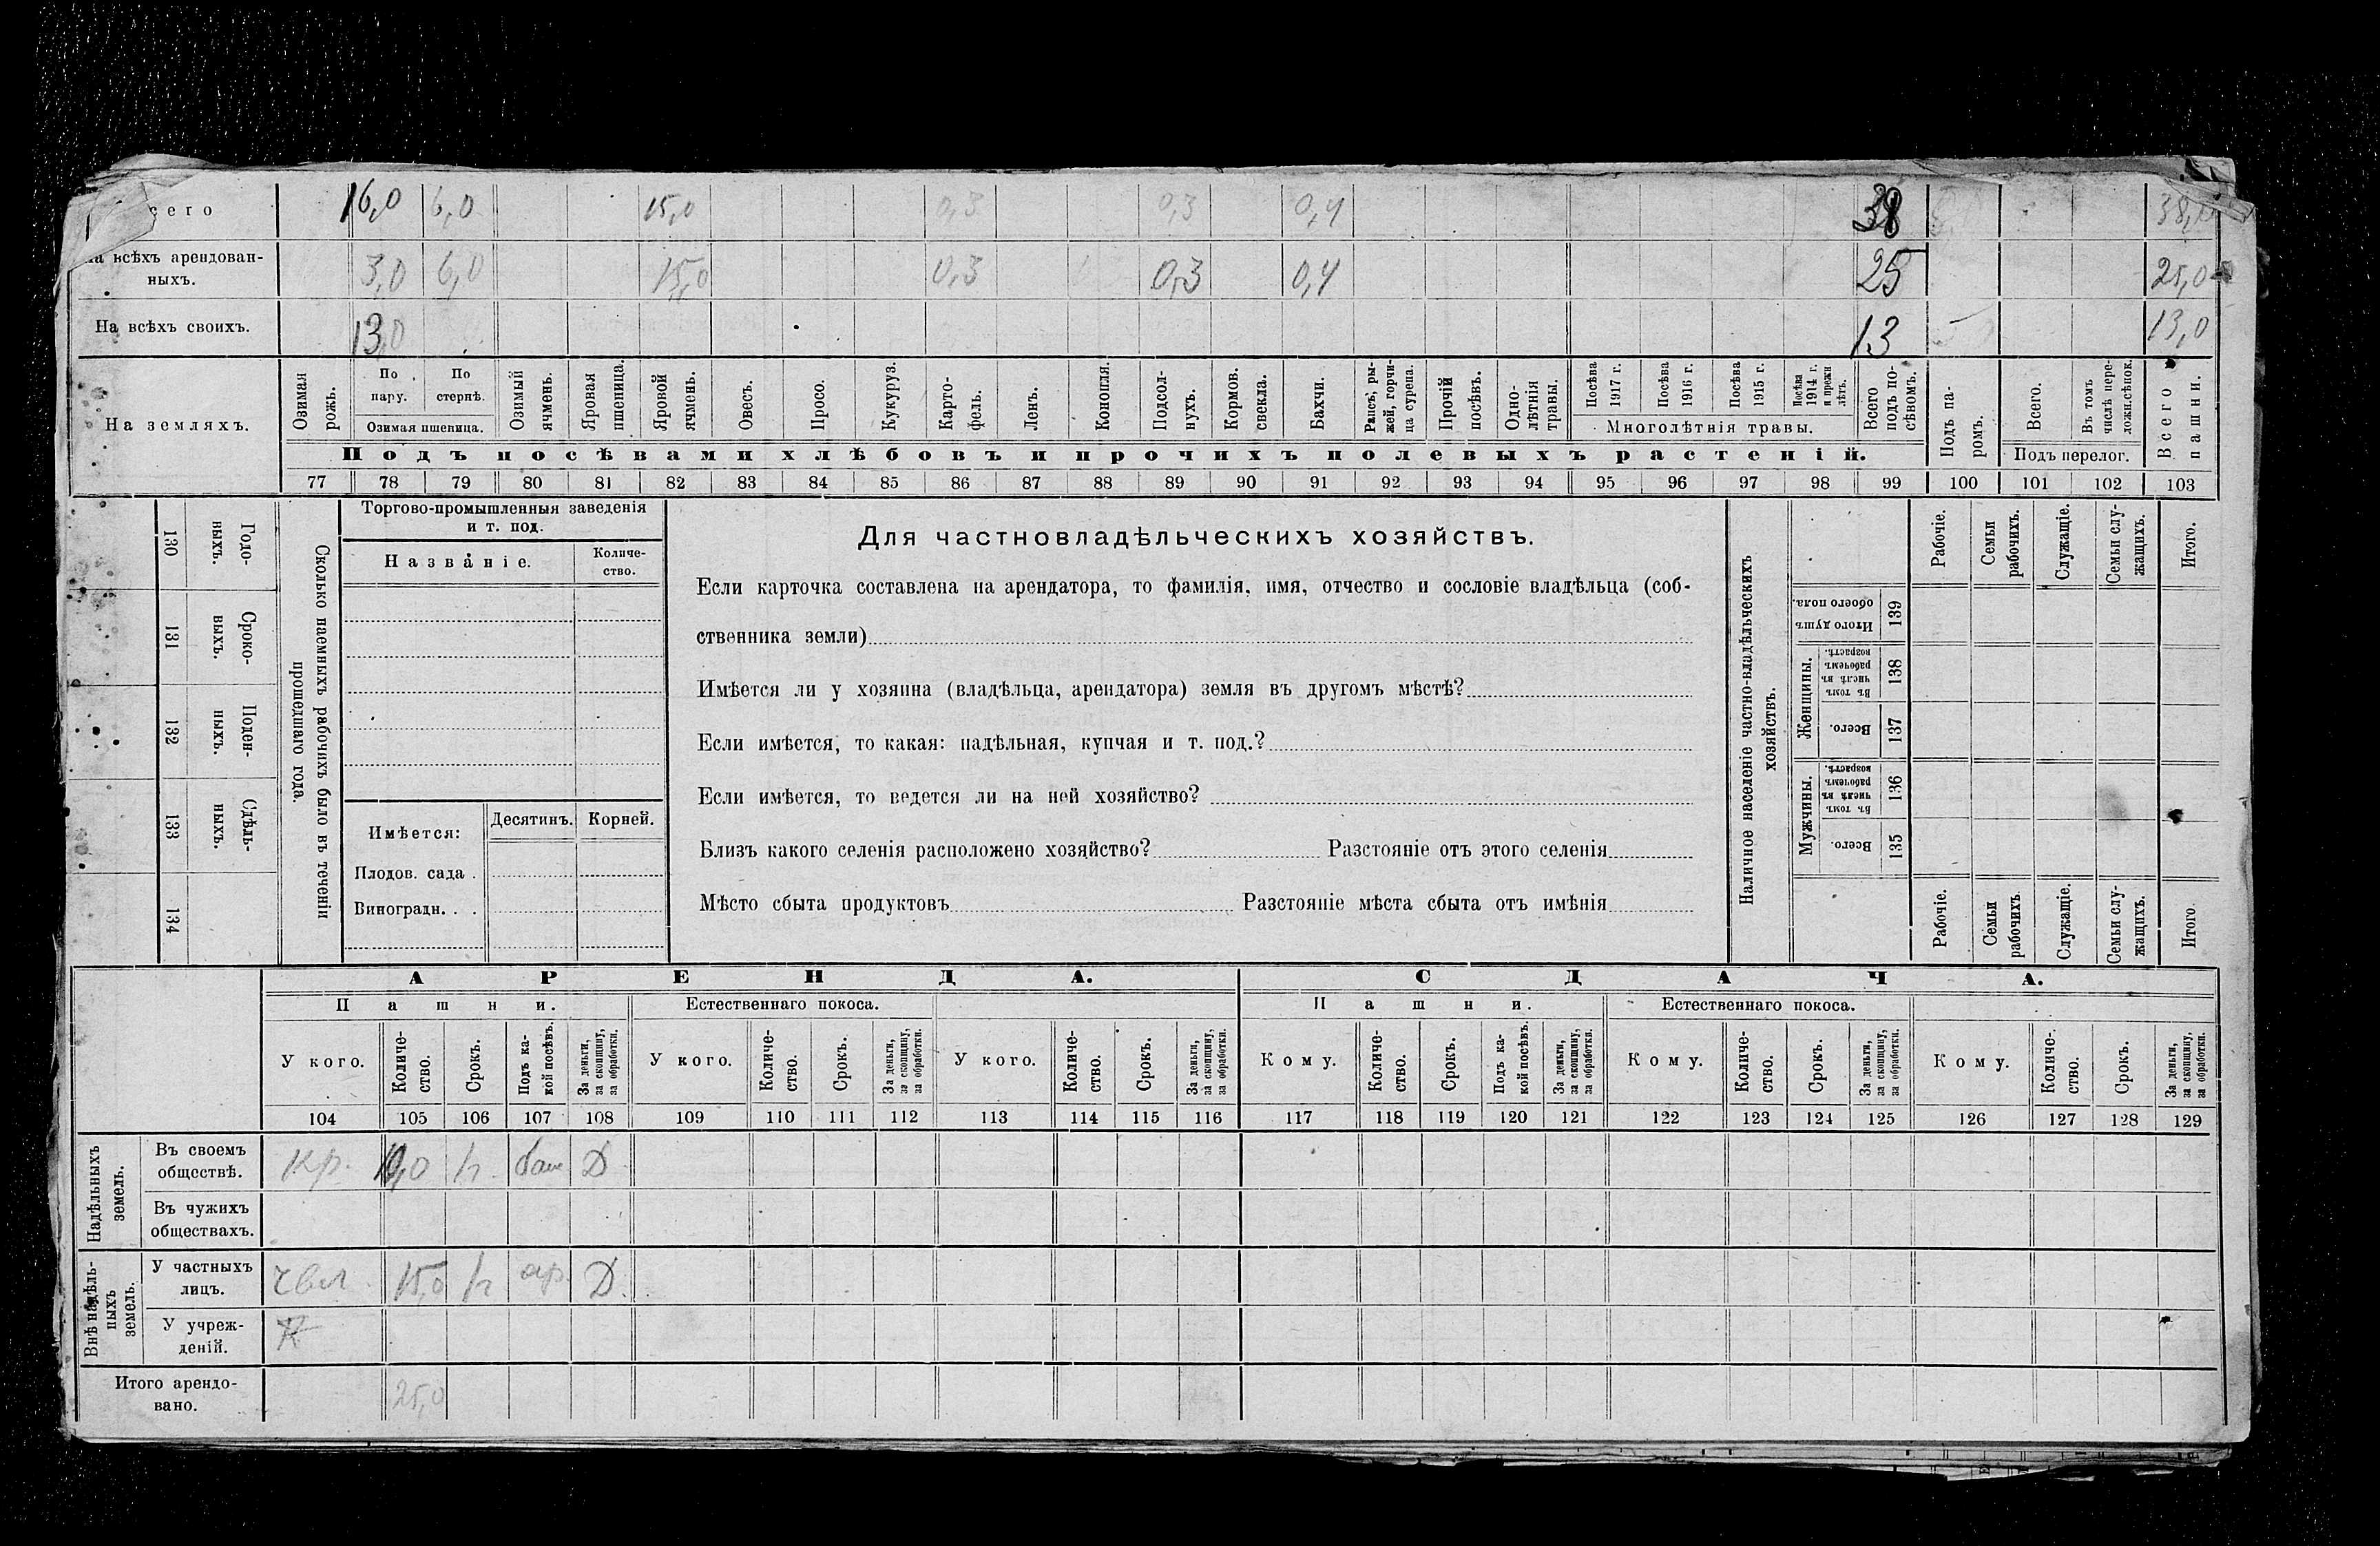 сего 16,0 6,0 15,0 0,3 0,3 0,4 38 38,0
на всѣхъ арендован-
ныхъ. 3,0 6,0 15,0 0,3 0,3 0,4 25 25,0
На всѣхъ своихъ. 13,0 13 13,0
На земляхъ.
Озимая рожь.
По пару.
По стернѣ.
Озимая пшеница.
Озимый ячмень.
Яровая пшеница.
Яровой ячмень.
Овесъ.
Просо.
Кукуруз.
Карто-
фель.
Ленъ.
Конопля.
Подсол-
нухъ.
Кормов. свекла.
Бахчи.
Рапсъ, ры-
жей, горчи-
ца сурепа.
Прочій посѣвъ.
Одно-
лѣтнія травы.
Посѣва 1917 г.
Посѣва 1916 г.
Посѣва 1915 г.
Посѣва 1914 г. и прежн лѣтъ.
Многолѣтнія травы.
Всего подъ по-
сѣвомъ.
Подъ посѣвами хлѣбовъ и прочихъ полевыхъ растеній.
Подъ па-
ромъ.
Всего.
Въ томъ числѣ пере-
ложн.сѣнок.
Подъ перелог.
Всего пашни.
77 78 79 80 81 82 83 84 85 86 87 88 89 90 91 92 93 94 95 96 97 98 99 100 101 102 103
130 Годо-
ныхъ.
131 Сроко-
выхъ.
132 Поден-
ныхъ.
133 Сдѣль-
ныхъ.
134
Сколько наемныхъ рабочихъ было въ теченіи
прошедшаго года.
Торгово-промышленныя заведенія
и т. под.
Названіе.
Количе-
ство.
Имѣется: Десятинъ. Корней.
Плодов. сада .
Виноградн. . .
Для частновладѣльческихъ хозяйствъ.
Если карточка составлена на арендатора, то фамилія, имя, отчество и сословіе владѣльца (соб-
ственника земли)
Имѣется ли у хозяина (владѣльца, арендатора) земля въ другомъ мѣстѣ?
Если имѣется, то какая: надѣльная, купчая и т. под.?
Если имѣется, то ведется ли на ней хозяйство?
Близъ какого селенія расположено хозяйство? Разстояніе отъ этого селенія
Мѣсто сбыта продуктовъ Разстояніе мѣста сбыта отъ имѣнія
Наличное населеніе частно-владѣльческихъ
хозяйствъ.
Рабочіе.
Семьи рабочихъ.
Служащіе.
Семьи слу-
жащихъ.
Итого.
Итого душъ обоего пола. 139
Женщины.
Въ томъ числѣ въ рабочемъ возрастѣ. 138
Всего. 137
Мужчины.
Въ томъ числѣ въ рабочемъ возрастѣ. 136
Всего. 135
Рабочіе.
Семьи рабочихъ
Служащіе.
Семьи слу-
жащихъ.
Итого
АРЕНДА. СДАЧА.
Пашни. Естественнаго покоса. Пашни. Естественнаго покоса.
У кого.
Количе-
ство.
Срокъ.
Подъ ка-
кой посѣвъ.
За деньги, за скопщину, за обработки.
У кого.
Количе-
ство.
Срокъ.
За деньги, за скопщину, за обработки.
У кого.
Количе-
ство.
Срокъ.
За деньги, за скопщину, за обработки.
Кому.
Количе-
ство.
Срокъ.
Подъ ка-
кой посѣвъ.
За деньги, за скопщину, за обработки.
Кому.
Количе-
ство.
Срокъ.
За деньги, за скопщину, за обработки.
Кому.
Количе-
ство.
Срокъ.
За деньги, за скопщину, за обработки.
104 105 106 107 108 109 110 111 112 113 114 115 116 117 118 119 120 121 122 123 124 125 126 127 128 129
Надѣльныхъ земель.
Въ своемъ
обществѣ. Кр. 10,0 Д
Въ чужихъ
обществахъ.
Внѣ надѣль-
ныхъ земель.
У частныхъ
лицъ. 15,0 Д.
У учреж-
деній.
Итого арендо-
вано. 25,0